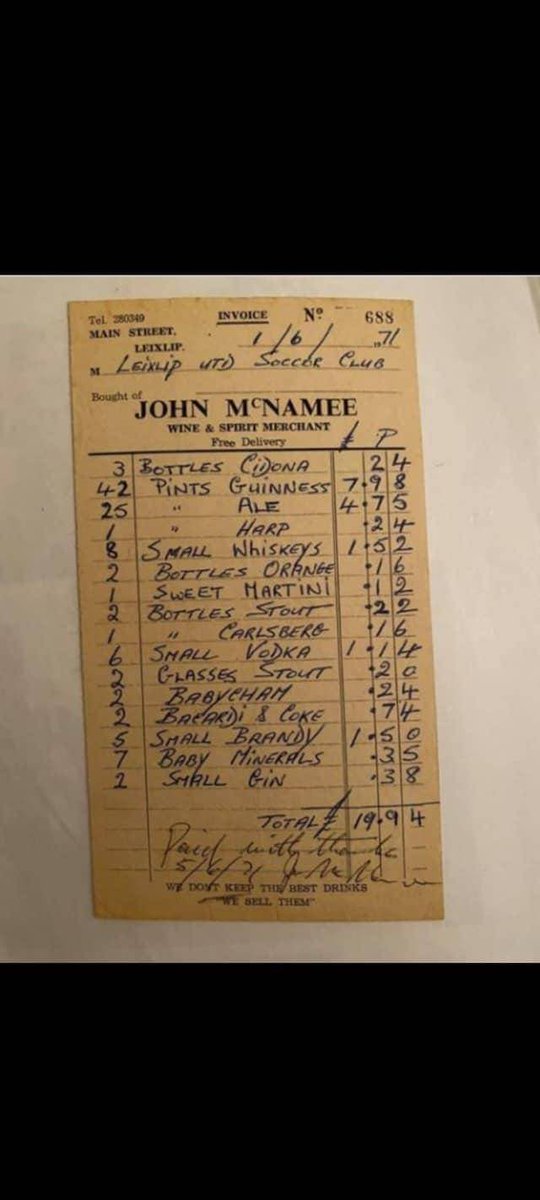 Tel. 280349 INVOICE Nº 688
MAIN STREET,
LEIXLIP. 1/6/ 71
M LEIXLIP UTD SOCCER CLUB
Bought of
JOHN McNAMEE
WINE & SPIRIT MERCHANT
Free Delivery £ P
3 BOTTLES CIDONA 24
42 PINTS GUINNESS 7.98
25 " ALE 4.75
1 " HARP .24
8 SMALL WHISKEYS 1.52
2 BOTTLES ORANGE .16
1 SWEET MARTINI .12
2 BOTTLES STOUT .22
1 " CARLSBERG .16
6 SMALL VODKA 1.14
2 GLASSES STOUT .20
2 BABYCHAM .24
2 BACARDI & COKE .74
5 SMALL BRANDY 1.50
7 BABY MINERALS .35
2 SMALL GIN .38
TOTAL £ 19.94
Paid with thanks
5/6/71
WE DON'T KEEP THE BEST DRINKS
"WE SELL THEM"